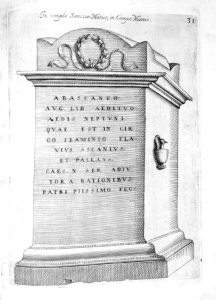 In templo Sanctae Mariae, in Campo Martio.
31
ABASCANTO
AVG. LIB. AEDITVO
AEDIS NEPTVNI
QVAE EST IN CIR
CO FLAMINIO FLA
VIVS ASCANIVS
ET PALLANS
CAES. N. SER ADIV
TOR A RATIONIBVS
PATRI PIISSIMO FEC.